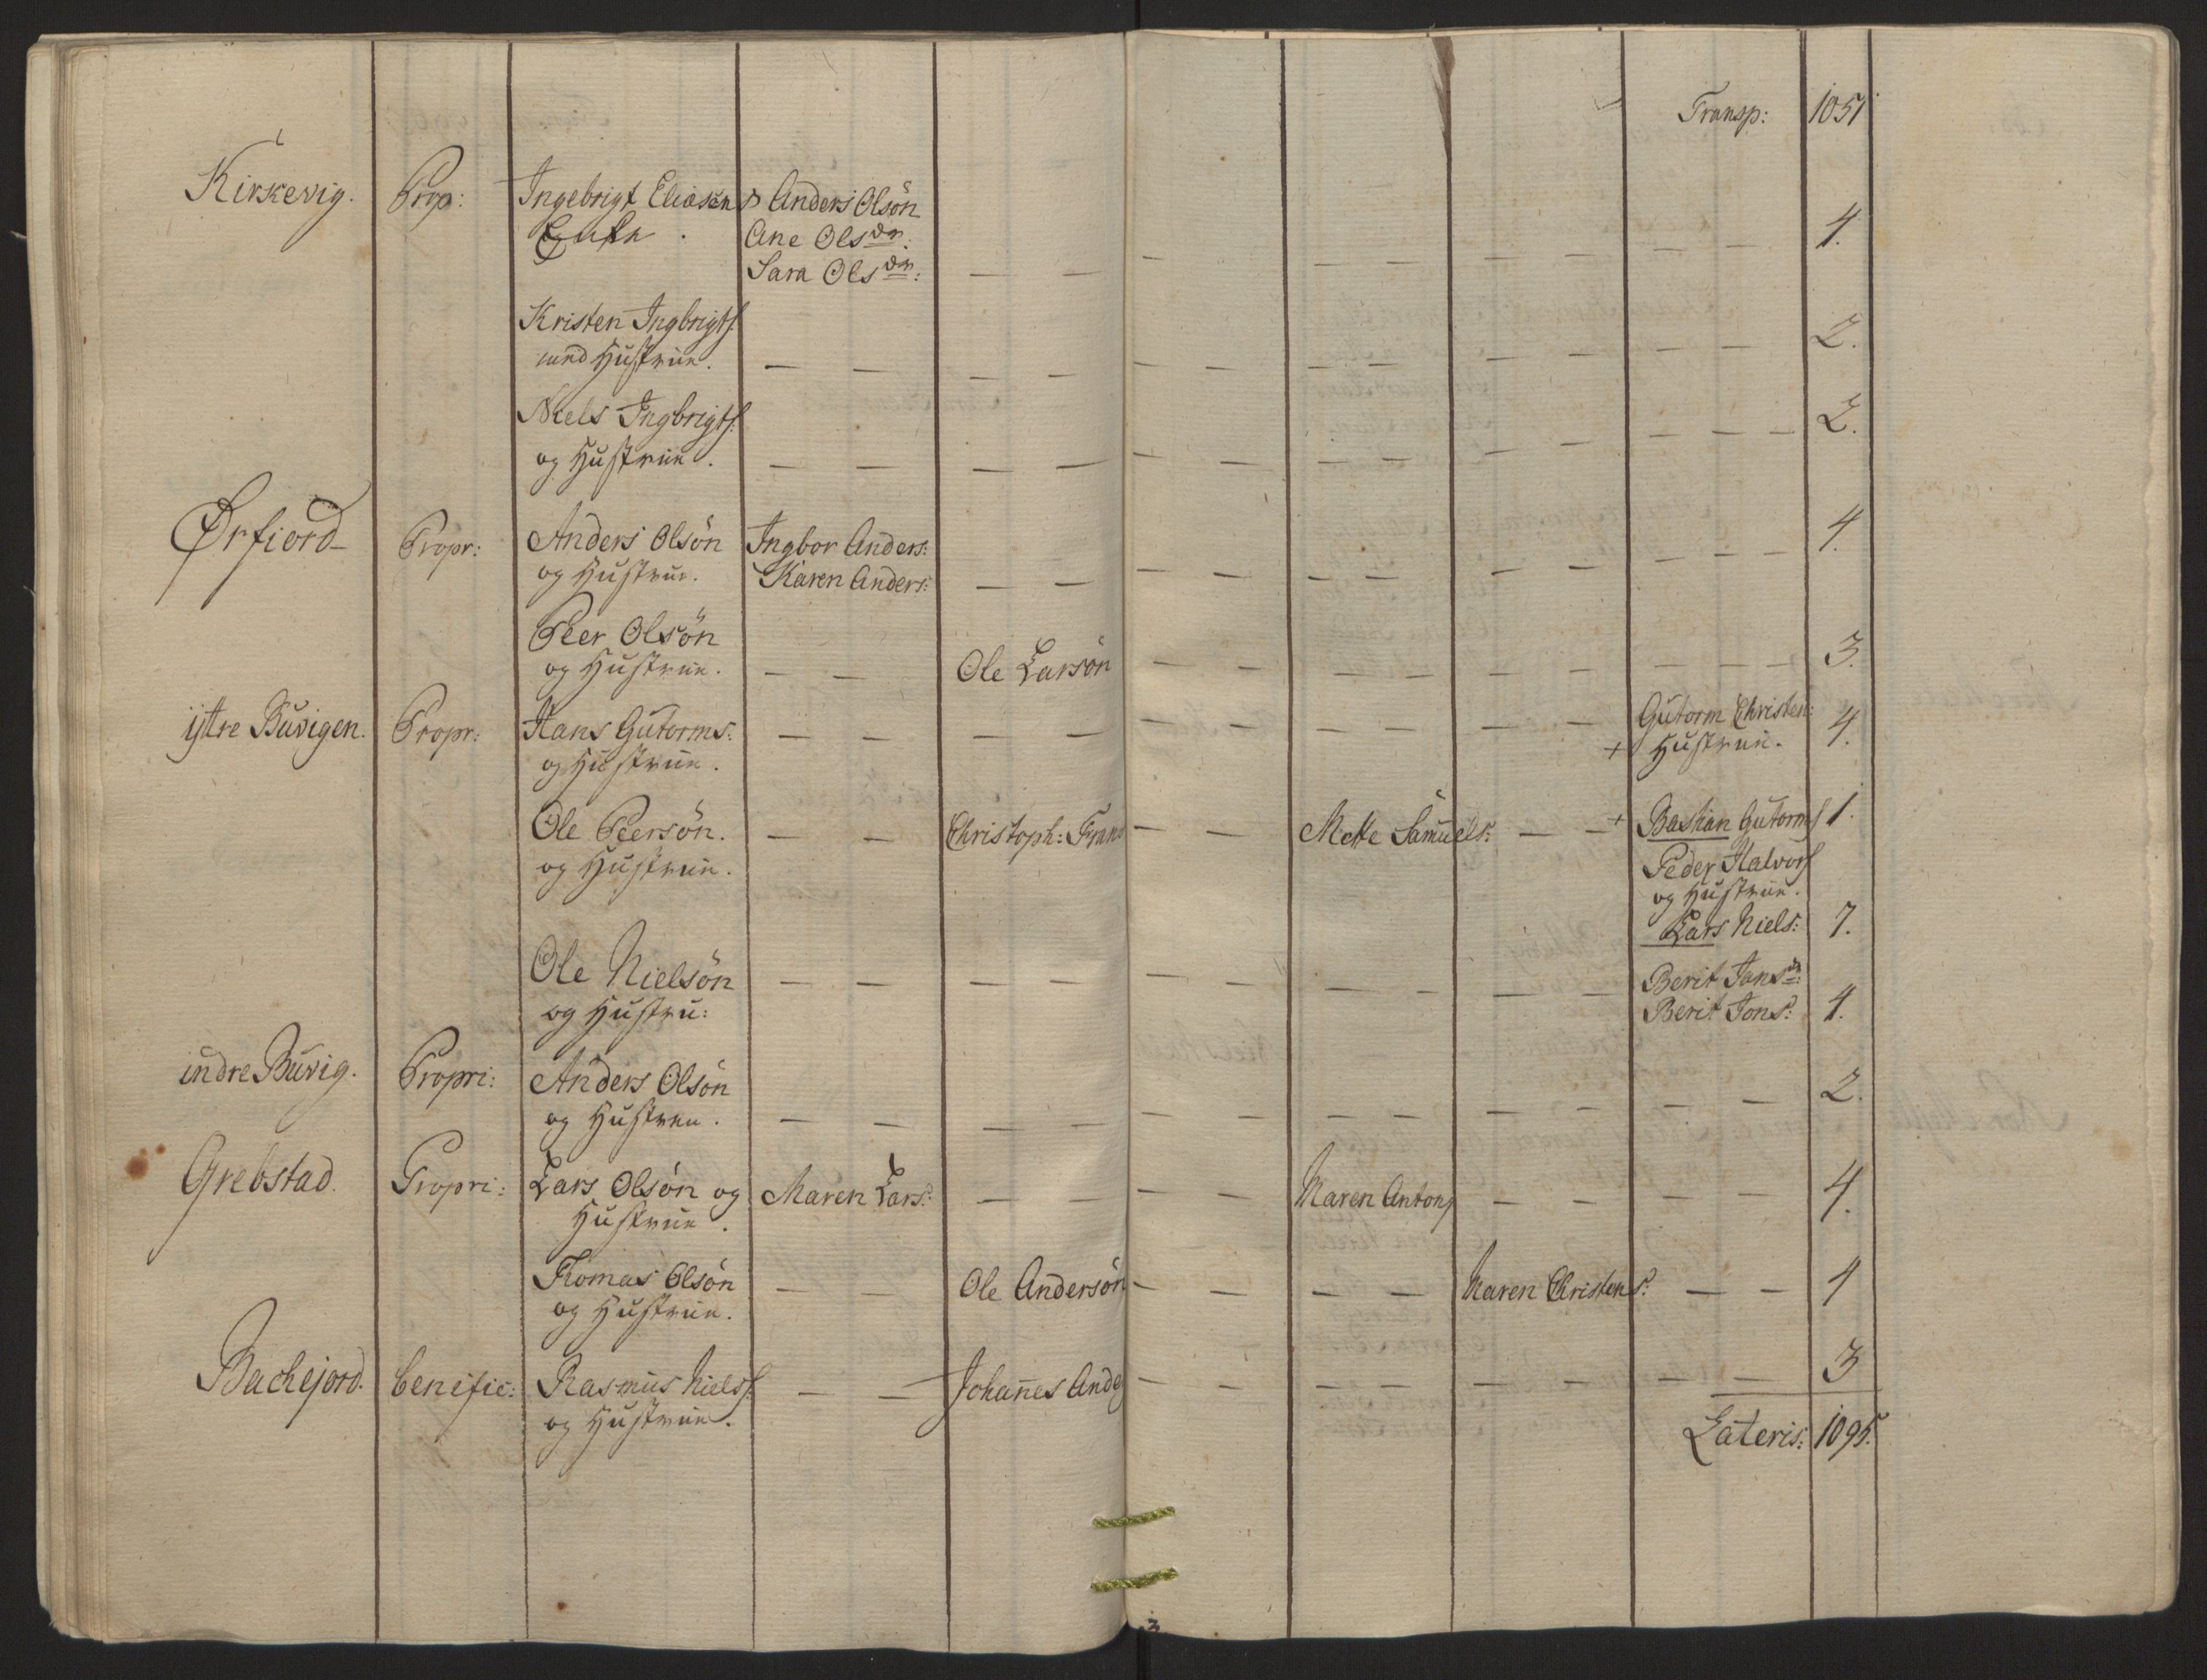 Transp: 1051
Kirkevig. Prop: Ingebrigt Eliasens Anders Olsön
Enke. Ane Olsdr: 4.
Sara Olsdr: — — — — — — — — —
Kristen Ingbrigts
med Hustrue. — — — — — — — — — — — — 2.
Niels Ingbrigts:
og Hustrue. — — — — — — — — — — — — — 2.
Ørfiord Propr: Anders Olsön Ingbor Anders: 4.
og Hustrue. Karen Anders: — — — — — — — — — — —
Peer Olsön
og Hustrue. — — Ole Larsön — — — — — — — — — 3.
ÿttre Buvigen. Propr: Hans Gutorms: — — — — — — — — — — Gutorm Christen: 4.
og Hustrue. + Hustrue.
Ole Peersön. — — Christoph: Frans — — Mette Samuels: — — + Bastian Gutorms 1.
og Hustrue. Peder Halvors
og Hustrue.
Lars Niels: 7.
Ole Nielsön — — — — — — — — — — Berit Jansdr:
og Hustru: Berit Jons: 4.
indre Buvig. Propri: Anders Olsön
og Hustrue. — — — — — — — — — — — — 2.
Grebstad. Propri: Lars Olsön og Maren Lars: — — — — Maren Antons — — — — 4.
Hustrue.
Tomas Olsön — — Ole Andersön — — — — Maren Christens: — — 4
og Hustrue.
Bachejord. benefic: Rasmus Niels: — — Johanes Anders — — — — — — — — 3
og Hustrue.
Lateris: 1095.